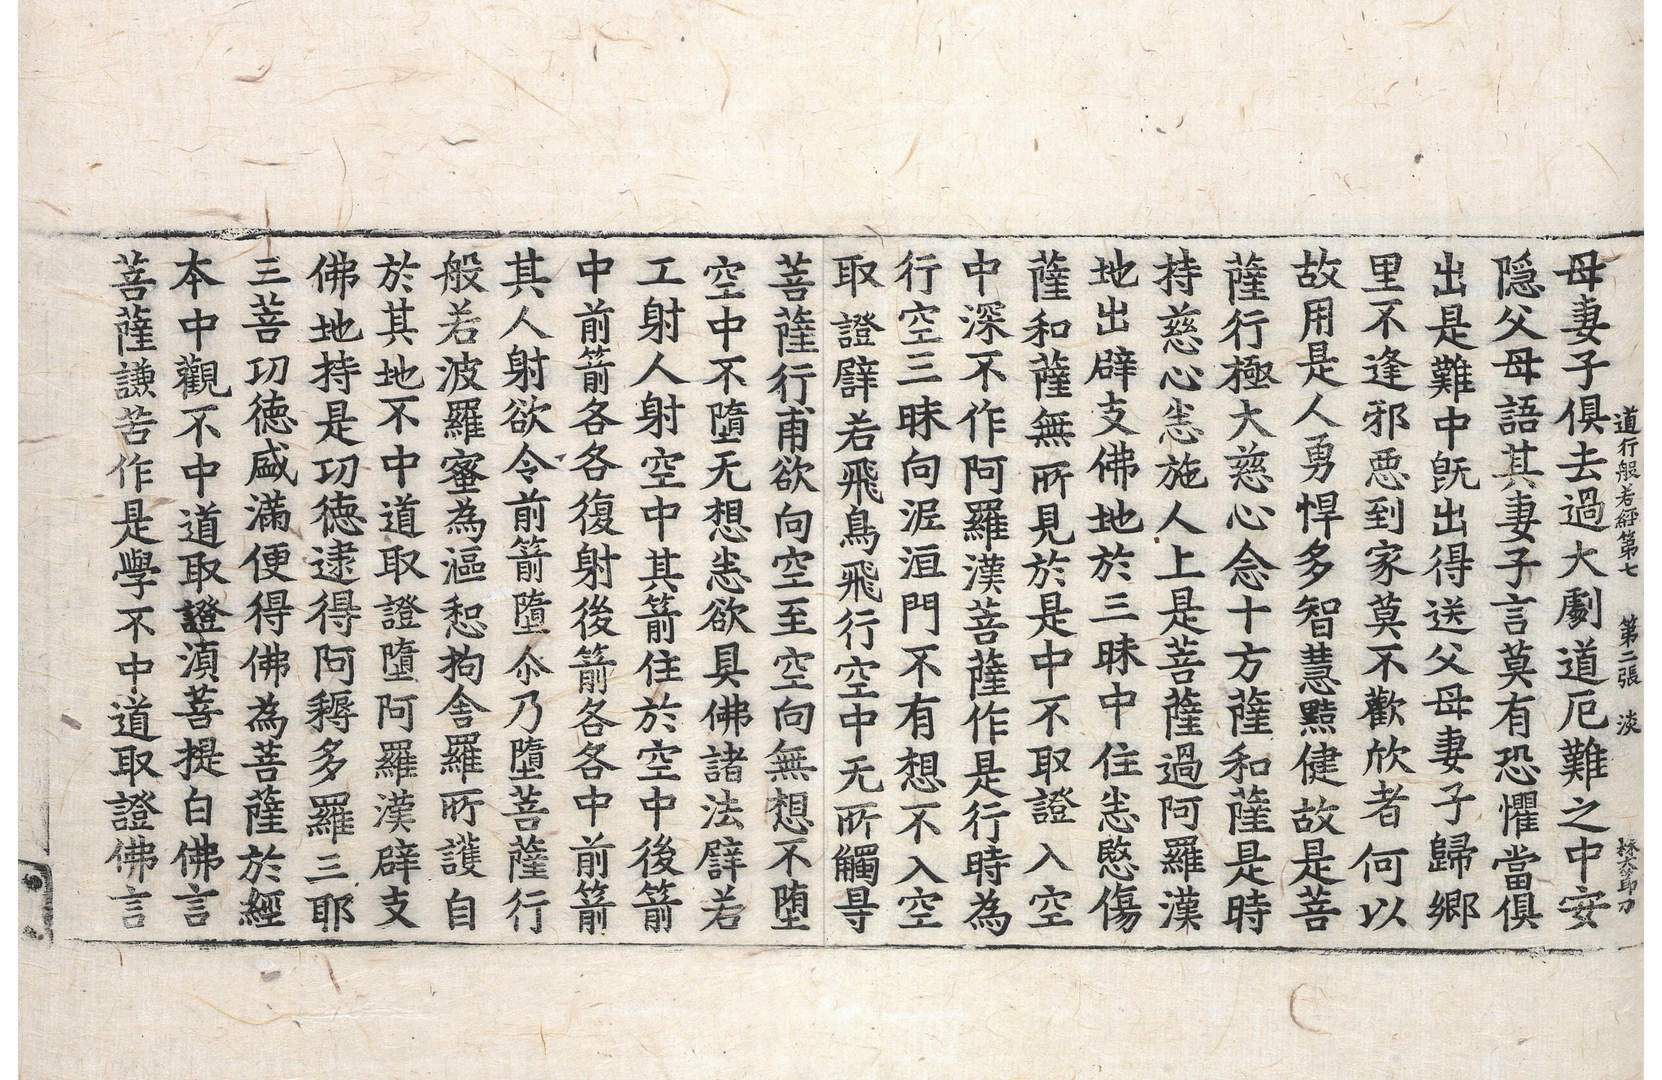 道行般若經第七 第二張 淡
母妻子俱去過大劇道厄難之中安
隱父母語其妻子言莫有恐懼當俱
出是難中旣出得送父母妻子歸鄉
里不逢邪惡到家莫不歡欣者何以
故用是人勇悍多智慧黠健故是菩
薩行極大慈心念十方薩和薩是時
持慈心悉施人上是菩薩過阿羅漢
地出辟支佛地於三昧中住悉愍傷
薩和薩無所見於是中不取證入空
中深不作阿羅漢菩薩作是行時為
行空三昧向泥洹門不有想不入空
取證譬若飛鳥飛行空中无所觸㝵
菩薩行甫欲向空至空向無想不墮
空中不墮无想悉欲具佛諸法譬若
工射人射空中其箭住於空中後箭
中前箭各各復射後箭各各中前箭
其人射欲令前箭墮尒乃墮菩薩行
般若波羅蜜為漚惒拘舍羅所護自
於其地不中道取證墮阿羅漢辟支
佛地持是功德逮得阿耨多羅三耶
三菩功德盛滿便得佛為菩薩於經
本中觀不中道取證湏菩提白佛言
菩薩謙苦作是學不中道取證佛言